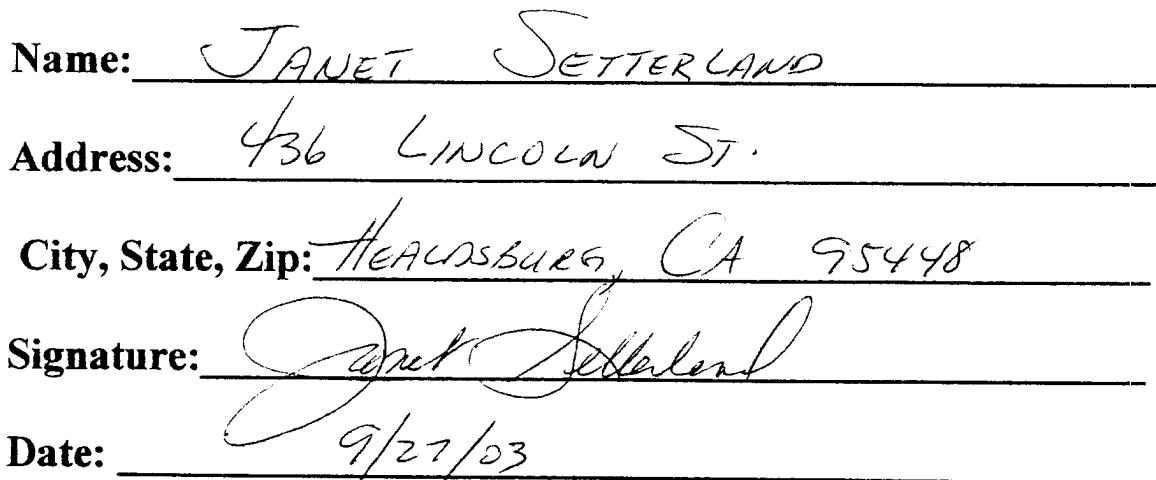 Name: JANET SETTERLAND
Address: 436 LINCOLN ST.
City, State, Zip: HEALDSBURG, CA 95448
Signature: Janet Setterland
Date: 9/27/03